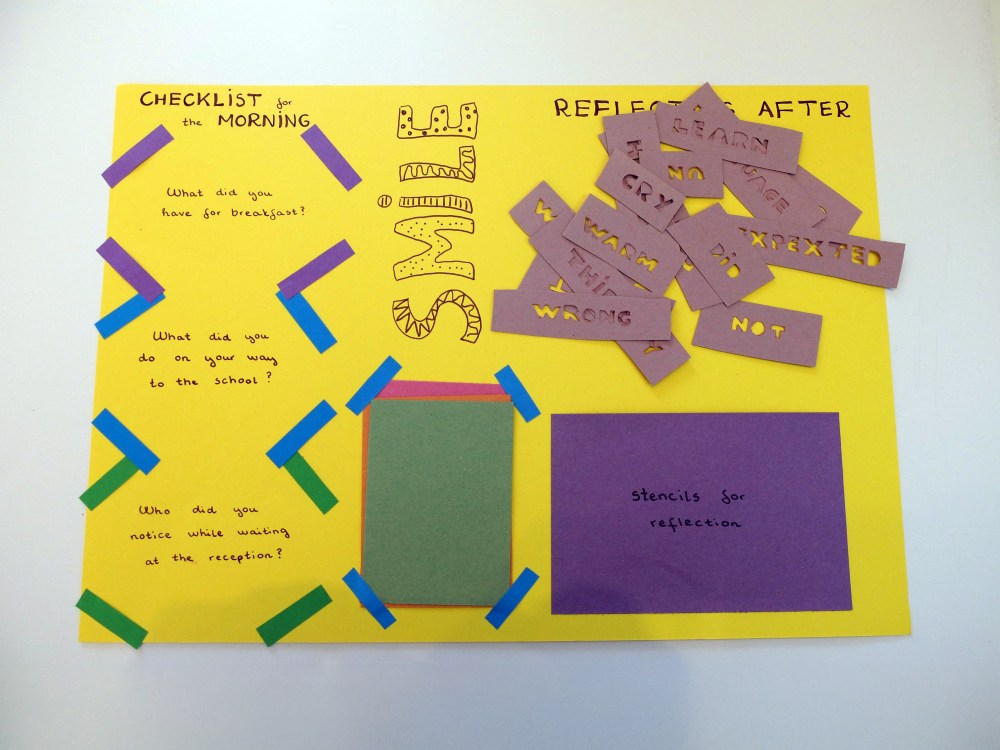 CHECKLIST for
the MORNING
What did you
have for breakfast?
What did you
do on your way
to the school?
Who did you
notice while waiting
at the reception?
SMILE
AFTER
LEARN
NO
CRY
WARM
DID
EXPEXTED
WRONG
NOT
stencils for
reflection